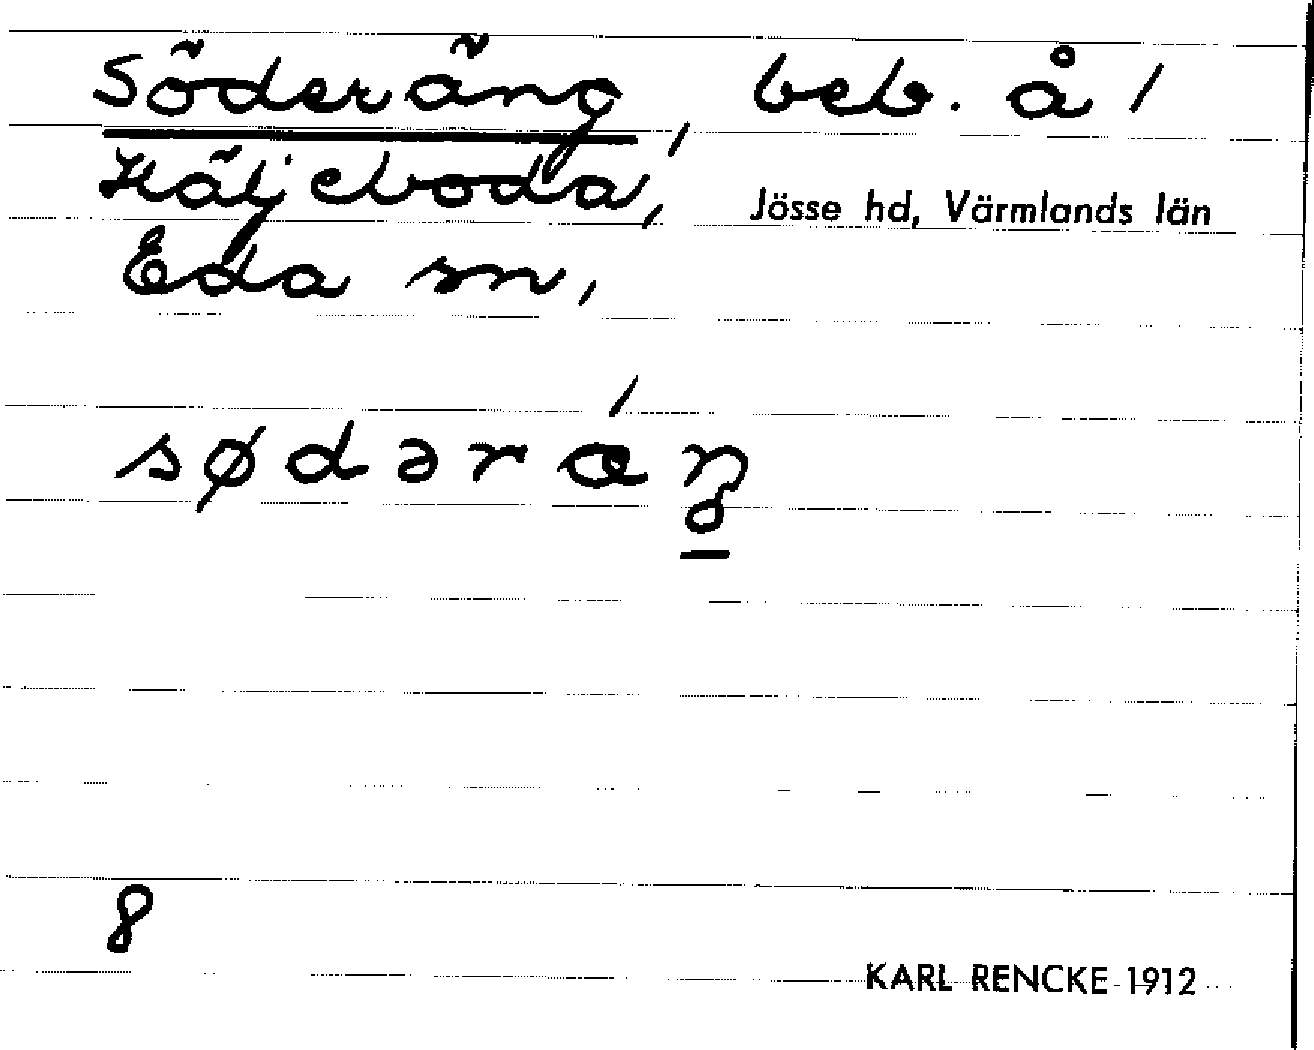 Söderäng, beb. å /
Häljeboda, Jösse hd, Värmlands län
Eda sn,
sødəræ´ŋ
8
KARL RENCKE 1912